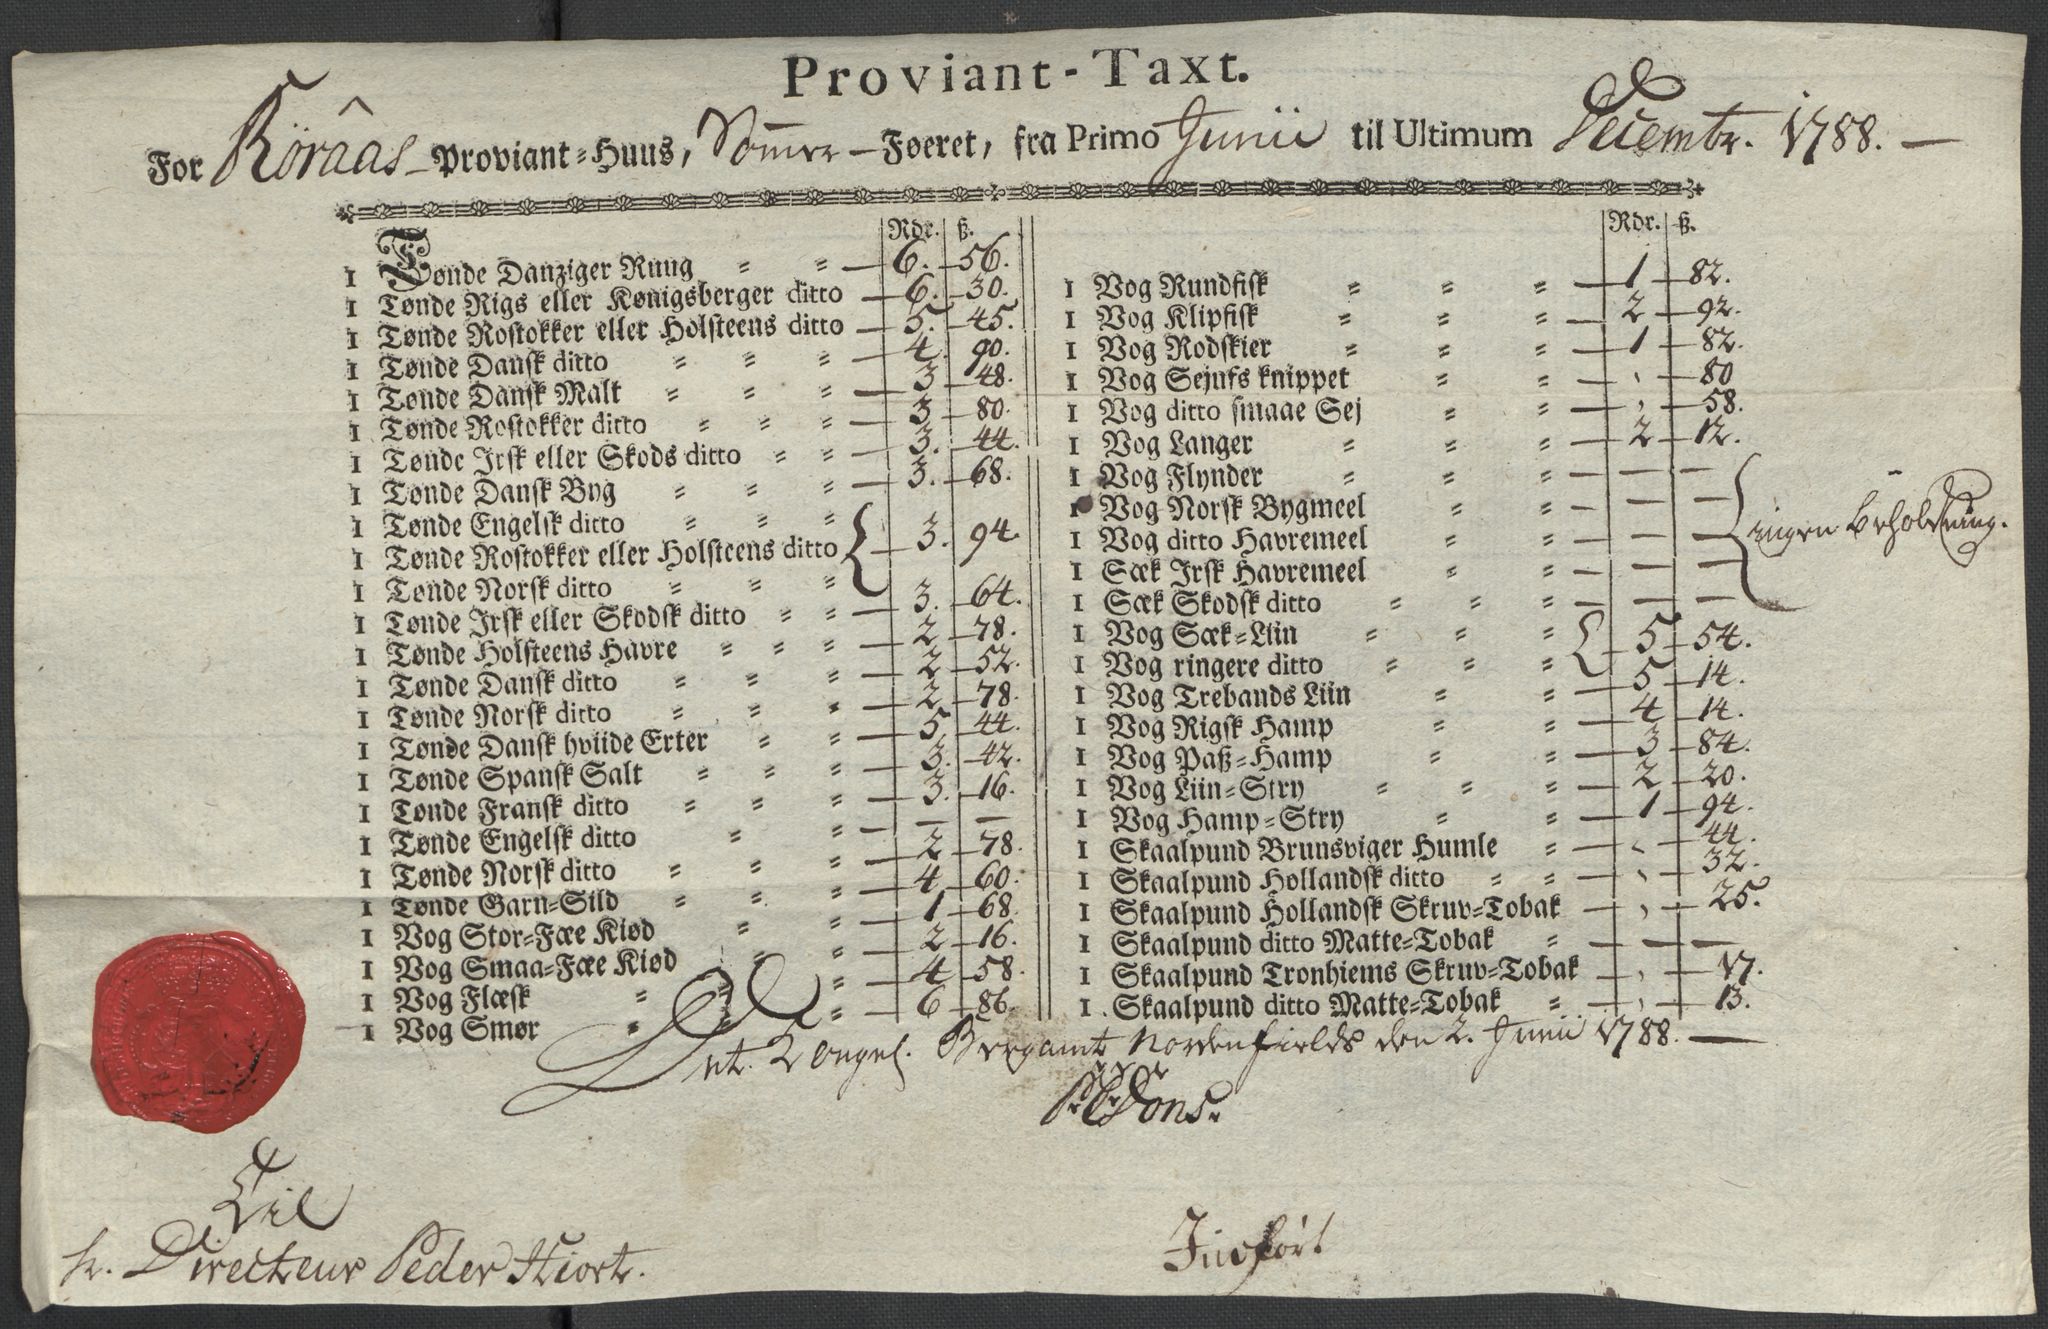 Proviant-Taxt.
For Röraas Proviant-Huus, Sommer-Føeret, fra Primo Junii til Ultimum Decembr. 1788.
Rdr. ß.
1 Tønde Danziger Ruug 6. 56.
1 Tønde Rigs eller Kønigsberger ditto 6. 30.
1 Tønde Rostokker eller Holsteens ditto 5. 45.
1 Tønde Dansk ditto 4. 90.
1 Tønde Dansk Malt 3 48.
1 Tønde Rostokker ditto 3 80.
1 Tønde Irsk eller Skods ditto 3. 44.
1 Tønde Dansk Byg 3. 68.
1 Tønde Engelsk ditto
1 Tønde Rostokker eller Holsteens ditto 3. 94.
1 Tønde Norsk ditto
1 Tønde Irsk eller Skodsk ditto 3. 64.
1 Tønde Holsteens Havre 2 78.
1 Tønde Dansk ditto 2 52.
1 Tønde Norsk ditto 2 78.
1 Tønde Dansk hviide Erter 5 44.
1 Tønde Spansk Salt 3. 42.
1 Tønde Fransk ditto 3. 16.
1 Tønde Engelsk ditto — —
1 Tønde Norsk ditto 2 78.
1 Tønde Garn-Sild 4 60.
1 Vog Stor-Fæe Kiød 1 68.
1 Vog Smaa-Fæe Kiød 2 16.
1 Vog Flæsk 4 58.
1 Vog Smør 6 86.
Rdr. ß.
1 Vog Rundfisk 1 82.
1 Vog Klipfisk 2 92.
1 Vog Rodskier 1 82.
1 Vog Sejufs knippet 80
1 Vog ditto smaae Sej 58.
1 Vog Langer 2 12.
1 Vog Flynder — —
1 Vog Norsk Bygmeel — —
1 Vog ditto Havremeel — — ingen Beholdning.
1 Sæk Irsk Havremeel — —
1 Sæk Skodsk ditto — —
1 Vog Sæk-Liin 5 54.
1 Vog ringere ditto
1 Vog Trebands Liin 5 14.
1 Vog Rigsk Hamp 4 14.
1 Vog Paß-Hamp 3 84.
1 Vog Liin-Stry 2 20.
1 Vog Hamp-Stry 1 94.
1 Skaalpund Brunsviger Humle 44
1 Skaalpund Hollandsk ditto 32.
1 Skaalpund Hollandsk Skruv-Tobak 25.
1 Skaalpund ditto Matte-Tobak — —
1 Skaalpund Tronhiems Skruv-Tobak 17.
1 Skaalpund ditto Matte-Tobak 13.
Det Kongel. Bergamt Nordenfields den 2. Junii 1788.
Dons.
Til
hr. Directeur Peder Hiort.
Indført